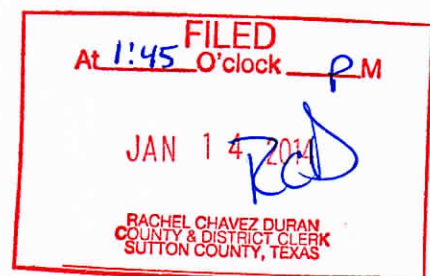 FILED
At 1:45 O'clock P M
JAN 14 2014
RCD
RACHEL CHAVEZ DURAN
COUNTY & DISTRICT CLERK
SUTTON COUNTY, TEXAS